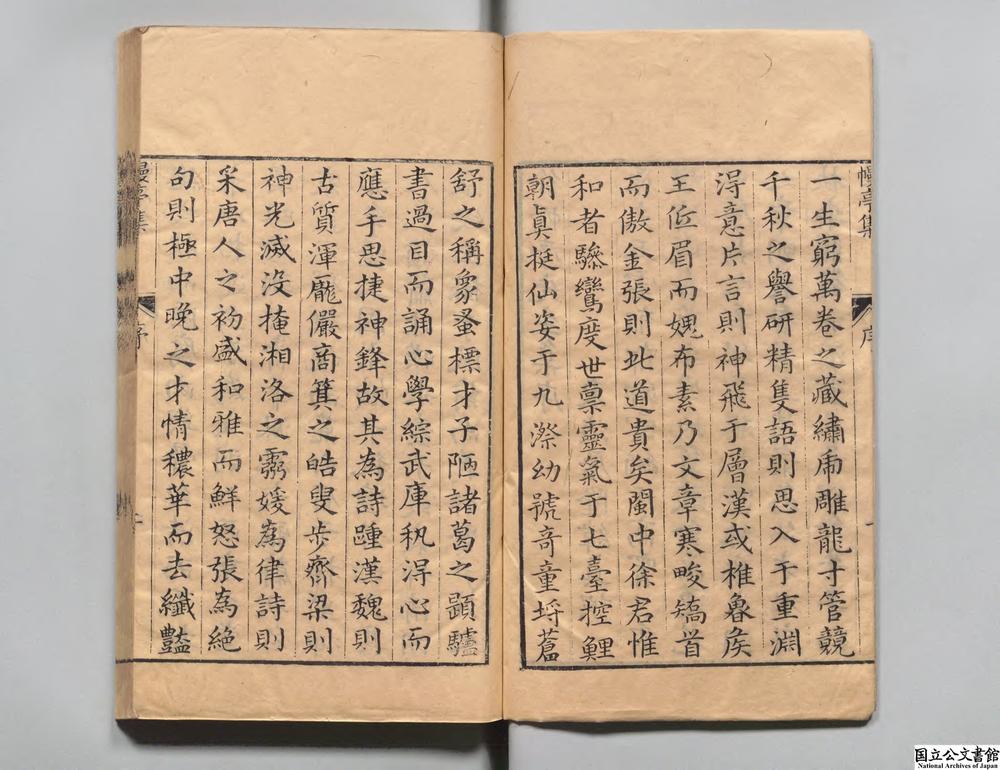 幔亭集
序
一生窮萬卷之藏繡虎雕龍寸管競
千秋之譽研精隻語則思入于重淵
淂意片言則神飛于層漢或椎魯矦
王仾眉而媿布素乃文章寒畯矯首
而傲金張則此道貴矣閩中徐君惟
和者驂鸞度世禀靈氣于七臺控鯉
朝真挺仙姿于九漈幼號奇童埒蒼
舒之稱象蚤標才子陋諸葛之題驢
書過目而誦心學綜武庫秇淂心而
應手思捷神鋒故其為詩踵漢魏則
古質渾厖儼商箕之皓叟步齊梁則
神光滅没掩湘洛之靈媛為律詩則
采唐人之初盛和雅而鮮怒張為絕
句則極中晚之才情穠華而去纖豔
幔亭集
序
国立公文書館
National Archives of Japan